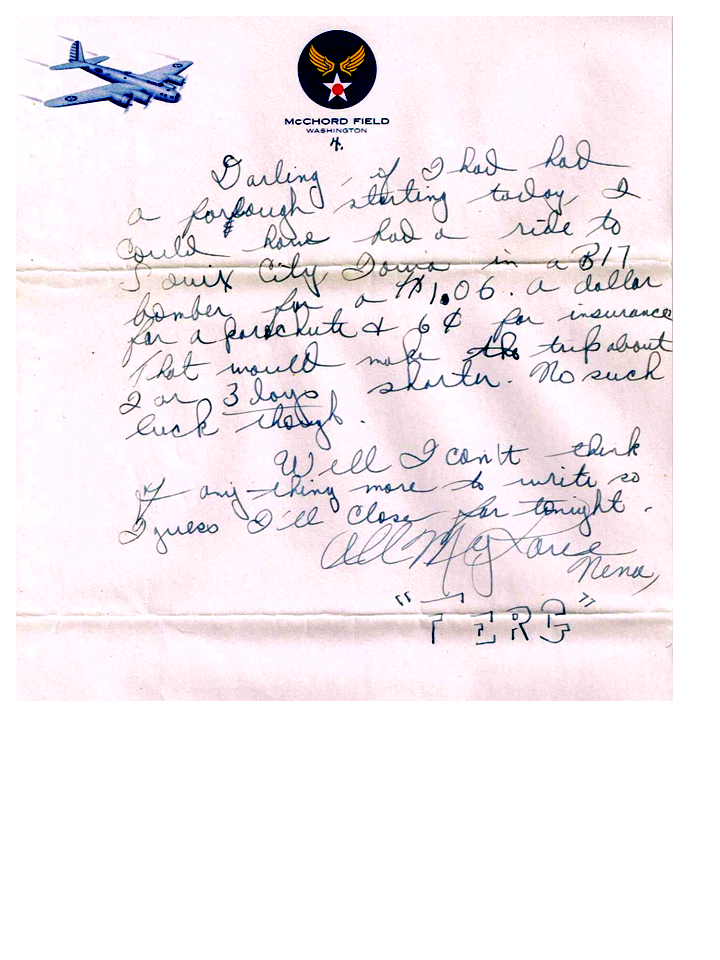 McCHORD FIELD
WASHINGTON
4.
Darling, if I had had
a forlough starting today, I
could have had a ride to
Souix City Iowa in a B17
bomber for a $1.06. A dollar
for a parachute & 6¢ for insurance
That would make the trip about
2 or 3 days shorter. No such
luck though.
Well I can't think
of any thing more to write so
I guess I'll close for tonight.
All My Love
Nena,
"FERG"